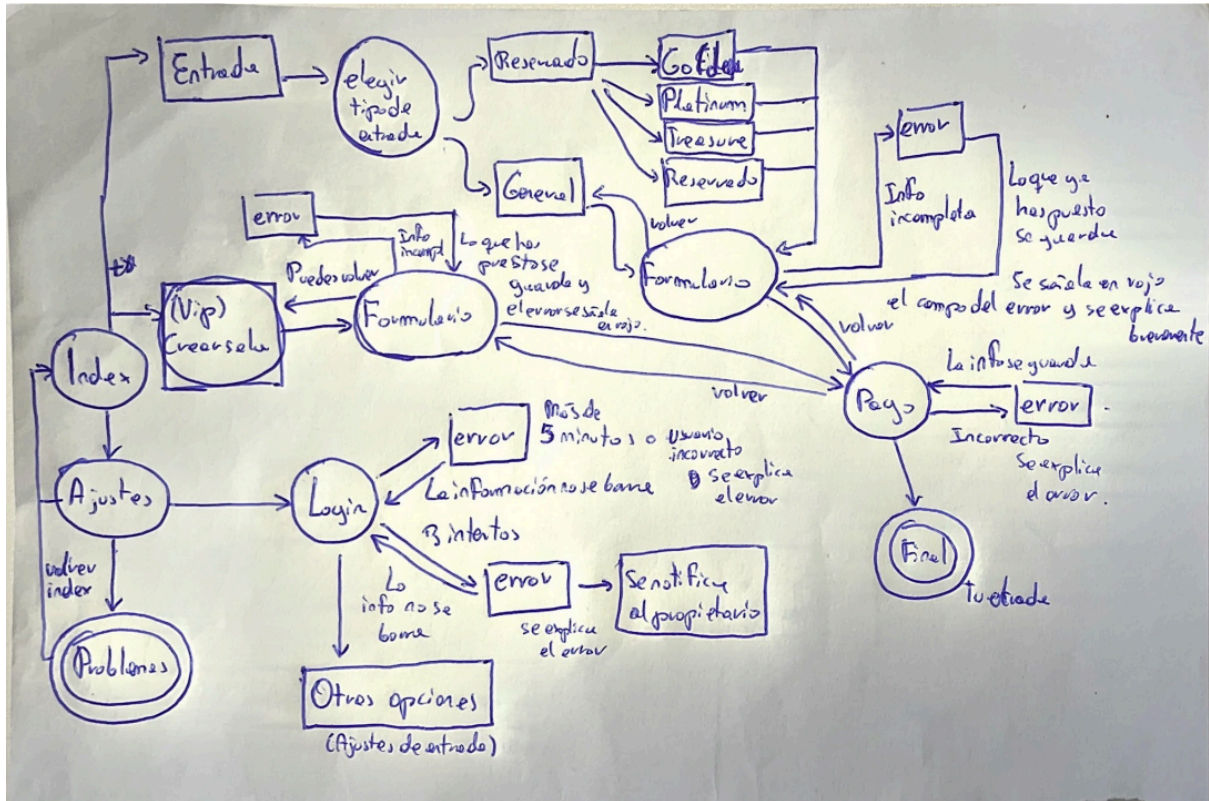 Entrada
elegir
tipo de
entrada
Reservado
Golden
Platinum
Treasure
Reservado
General
volver
Formulario
error
Info
incompleta
Lo que ya
has puesto
se guarda
Se señala en rojo
el campo del error y se explica
brevemente
error
Info
incompl
Lo que has
puesto se
guarda y
el error se señala
en rojo.
Puedes volver
(Vip)
Crear sala
Formulario
volver
volver
Index
Pago
La info se guarda
error
Incorrecto
Se explica
el error.
Final
tu entrada
Ajustes
volver
index
Problemas
Login
error
Más de
5 minutos o usuario
incorrecto
se explica
el error
La información no se borra
3 intentos
La
info no se
borra
error
se explica
el error
Se notifica
al propietario
Otras opciones
(Ajustes de entrada)